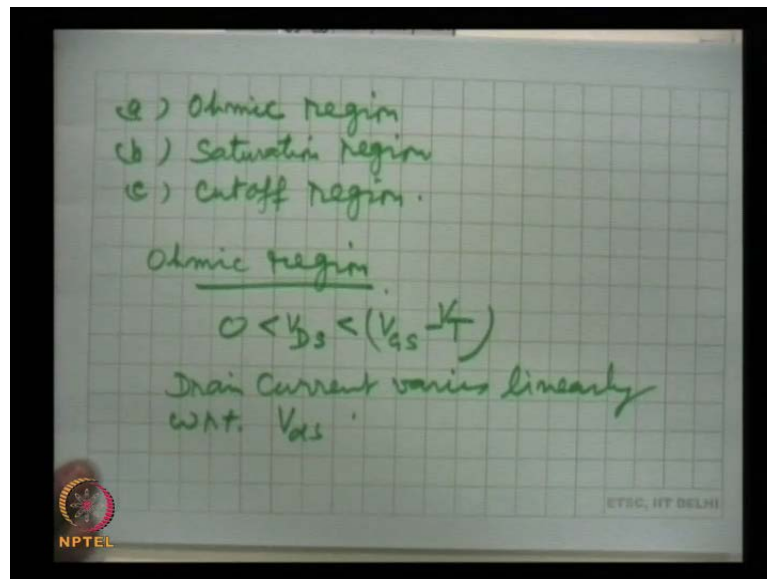 a) Ohmic region
b) Saturation region
c) Cutoff region.
Ohmic region
0 < V_DS < (V_GS - V_T)
Drain Current varies linearly
w.r.t. V_ds
ETSC, IIT DELHI
NPTEL